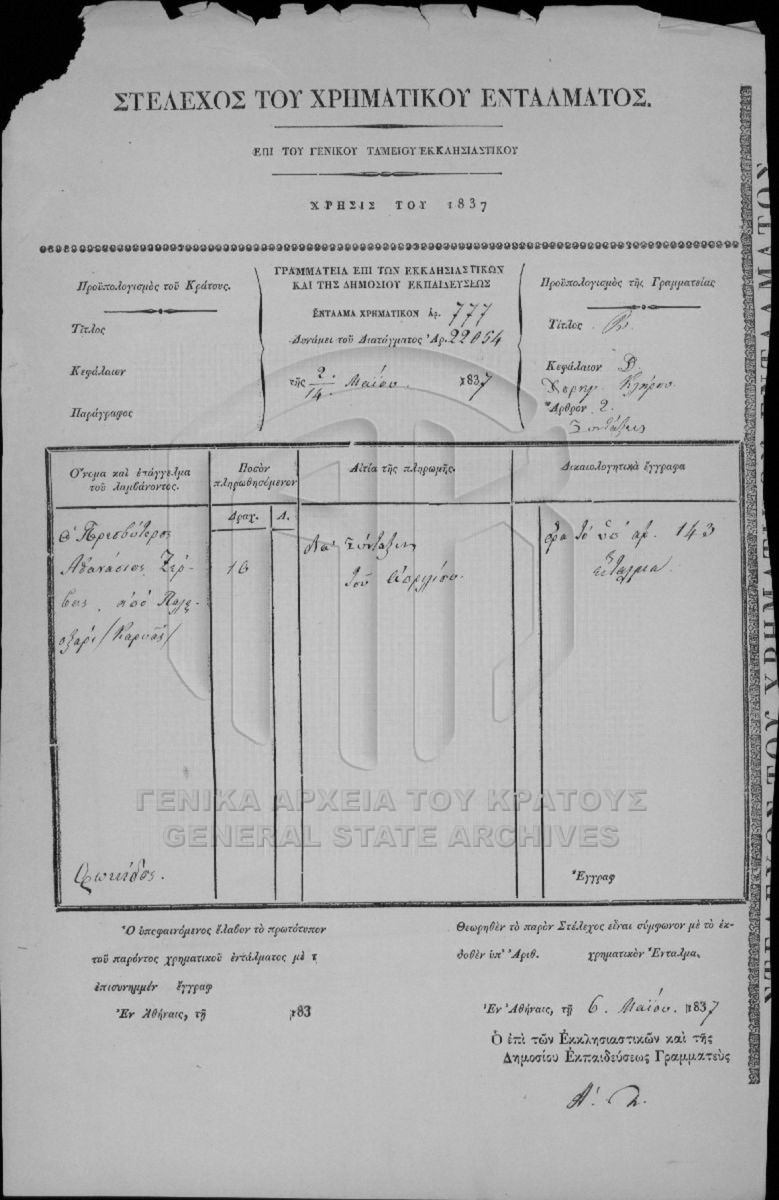 ΣΤΕΛΕΧΟΣ ΤΟΥ ΧΡΗΜΑΤΙΚΟΥ ΕΝΤΑΛΜΑΤΟΣ.
ΕΠΙ ΤΟΥ ΓΕΝΙΚΟΥ ΤΑΜΕΙΟΥ ΕΚΚΛΗΣΙΑΣΤΙΚΟΥ
ΧΡΗΣΙΣ ΤΟΥ 1837
Προϋπολογισμὸς τοῦ Κράτους.
Τίτλος
Κεφάλαιον
Παράγραφος
ΓΡΑΜΜΑΤΕΙΑ ΕΠΙ ΤΩΝ ΕΚΚΛΗΣΙΑΣΤΙΚΩΝ
ΚΑΙ ΤΗΣ ΔΗΜΟΣΙΟΥ ΕΚΠΑΙΔΕΥΣΕΩΣ
ΕΝΤΑΛΜΑ ΧΡΗΜΑΤΙΚΟΝ ἀρ. 777
Δυνάμει τοῦ Διατάγματος Ἀρ. 22054
τῆς 2/14 Μαΐου 1837
Προϋπολογισμὸς τῆς Γραμματείας
Τίτλος
Κεφάλαιον
Κλήρου
Ἄρθρον 2.
Συντάξεις
Ὄνομα καὶ ἐπάγγελμα
τοῦ λαμβάνοντος.
Ποσὸν
πληρωθησόμενον
Δραχ. Λ.
Αἰτία τῆς πληρωμῆς.
Δικαιολογητικὰ ἔγγραφα
Ὁ Πρεσβύτερος
Ἀθανάσιος Ζέρ-
βας ἀπὸ Παλε-
οξάρι
16
διὰ Σύνταξιν
τοῦ Ἀπριλίου.
ὅρα τὸ ὑπ' ἀρ. 143
ἔνταλμα.
Φωκίδος.
Ἔγγραφ
ΓΕΝΙΚΑ ΑΡΧΕΙΑ ΤΟΥ ΚΡΑΤΟΥΣ
GENERAL STATE ARCHIVES
Ὁ ὑπεφαινόμενος ἔλαβον τὸ πρωτότυπον
τοῦ παρόντος χρηματικοῦ ἐντάλματος μὲ τ
ἐπισυνημμέν ἔγγραφ
Ἐν Ἀθήναις, τῇ 183
Θεωρηθὲν τὸ παρὸν Στέλεχος εἶναι σύμφωνον μὲ τὸ ἐκ-
δοθὲν ὑπ' Ἀριθ. χρηματικὸν Ἔνταλμα.
Ἐν Ἀθήναις, τῇ 6 Μαΐου. 1837
Ὁ ἐπὶ τῶν Ἐκκλησιαστικῶν καὶ τῆς
Δημοσίου Ἐκπαιδεύσεως Γραμματεὺς